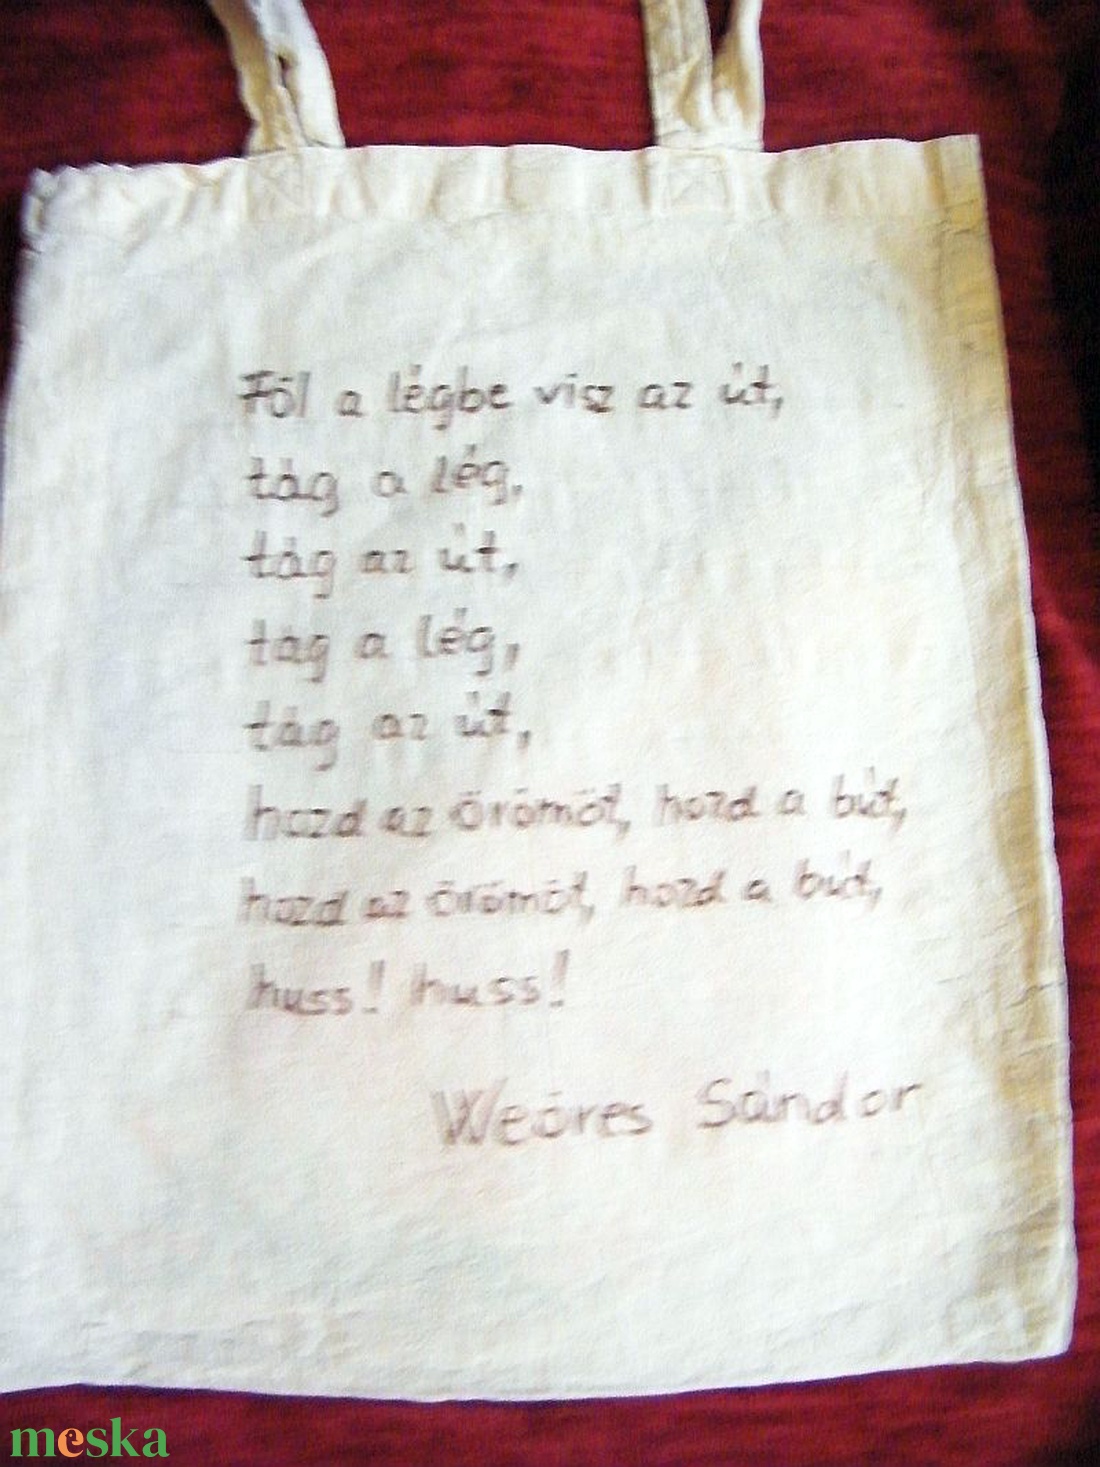 Föl a légbe visz az út,
tág a lég,
tág az út,
tág a lég,
tág az út,
hozd az örömöt, hozd a bút,
hozd az örömöt, hozd a bút,
huss! huss!
Weöres Sándor
meska